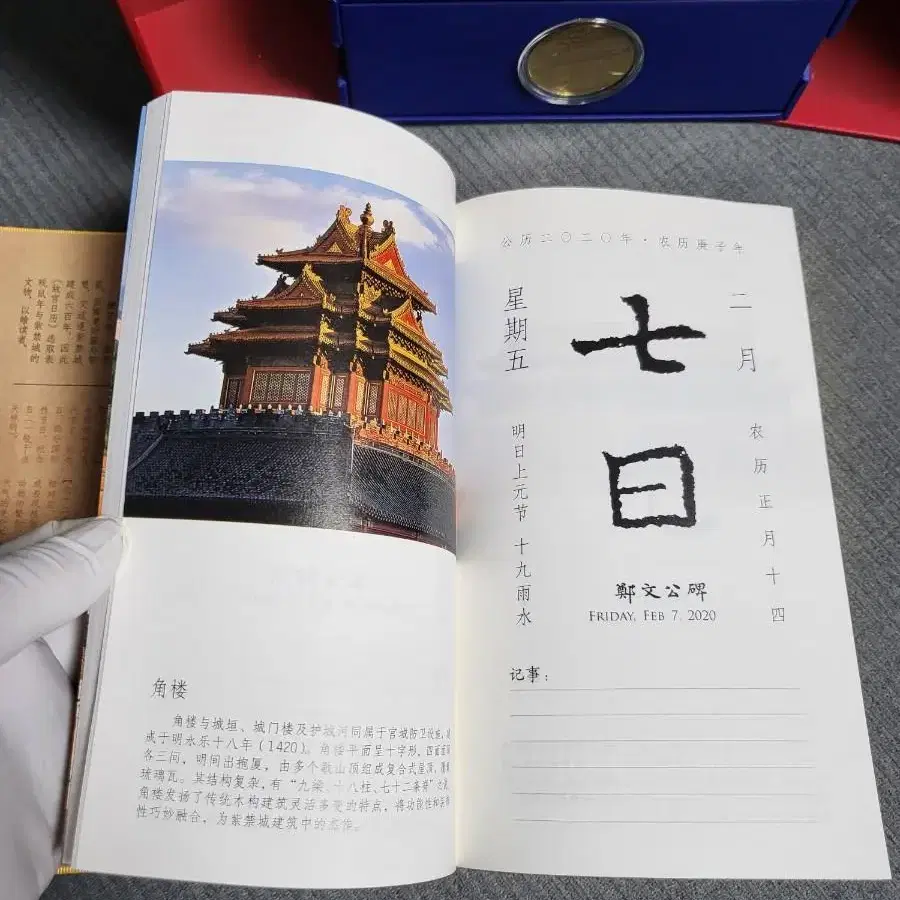 建成六百年,因此
《故宫日历》选取表
现鼠年与紫禁城的
文物,以飨读者。
角楼
角楼与城垣、城门楼及护城河同属于宫城防卫设施,
成于明永乐十八年(1420)。角楼平面呈十字形,四面
各三间,明间出抱厦,由多个歇山顶组成复合式屋顶,
琉璃瓦。其结构复杂,有“九梁、十八柱、七十二条脊”之
角楼发扬了传统木构建筑灵活多变的特点,将功能性和
性巧妙融合,为紫禁城建筑中的杰作。
公历二〇二〇年·农历庚子年
二月
七日
星期五
农历正月十四
明日上元节 十九雨水
鄭文公碑
FRIDAY, FEB 7, 2020
记事: